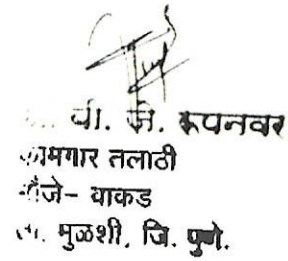 वी. जे. रूपनवर
कामगार तलाठी
मौजे- वाकड
ता. मुळशी. जि. पुणे.